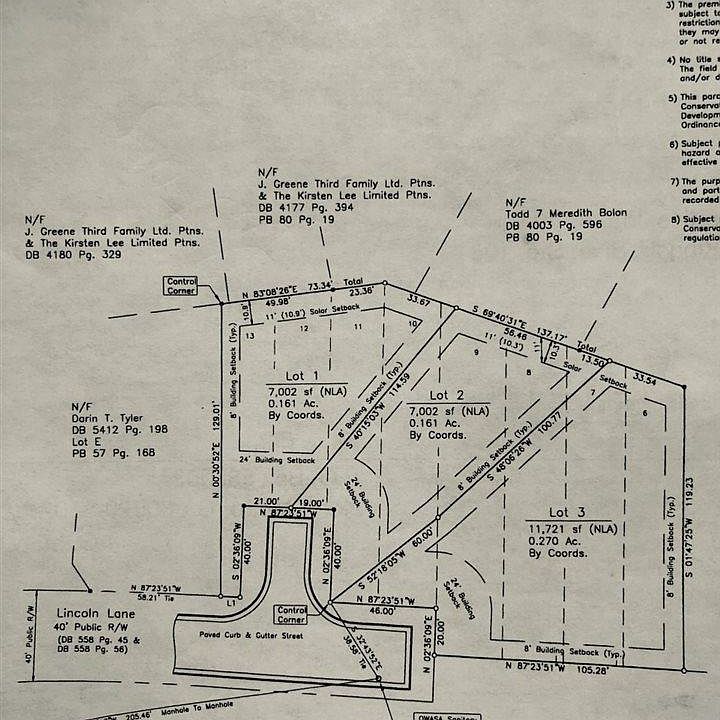 3) The prem
subject to
restriction
they may
or not re
4) No title s
The field
and/or d
5) This parc
Conserva
Developm
Ordinanc
6) Subject p
hazard a
effective
7) The purp
and part
recorded
8) Subject
Conserva
regulatio
N/F
J. Greene Third Family Ltd. Ptns.
& The Kirsten Lee Limited Ptns.
DB 4177 Pg. 394
PB 80 Pg. 19
N/F
Todd 7 Meredith Bolon
DB 4003 Pg. 596
PB 80 Pg. 19
N/F
J. Greene Third Family Ltd. Ptns.
& The Kirsten Lee Limited Ptns.
DB 4180 Pg. 329
Control
Corner
N 83°08'26"E 73.34' Total
49.98'
23.36'
33.67
S 69°40'31"E 137.17' Total
56.46
13.50
33.54
10.9'
11' (10.9') Solar Setback
13
12
11
10
9
8
7
6
11' (10.3')
11'
10.3'
Solar Setback
8' Building Setback (Typ.)
N 00°30'52"E 129.01'
Lot 1
7,002 sf (NLA)
0.161 Ac.
By Coords.
8' Building Setback (Typ.)
S 40°15'03"W 114.59
Lot 2
7,002 sf (NLA)
0.161 Ac.
By Coords.
8' Building Setback (Typ.)
S 48°06'26"W 100.77
Lot 3
11,721 sf (NLA)
0.270 Ac.
By Coords.
8' Building Setback (Typ.)
S 01°47'25"W 119.23
N/F
Darin T. Tyler
DB 5412 Pg. 198
Lot E
PB 57 Pg. 168
24' Building Setback
24' Building
Setback
21.00'
19.00'
N 87°23'51"W
S 02°36'09"W
40.00'
N 02°36'09"E
40.00'
S 52°18'05"W 60.00'
24' Building
Setback
N 87°23'51"W
58.21' Tie
L1
N 87°23'51"W
46.00'
Control
Corner
Lincoln Lane
40' Public R/W
(DB 558 Pg. 45 &
DB 558 Pg. 56)
40' Public R/W
Paved Curb & Gutter Street
S 32°43'52"E
38.58' Tie
N 02°36'09"E
20.00'
8' Building Setback (Typ.)
N 87°23'51"W 105.28'
205.46' Manhole To Manhole
OWASA Sanitary